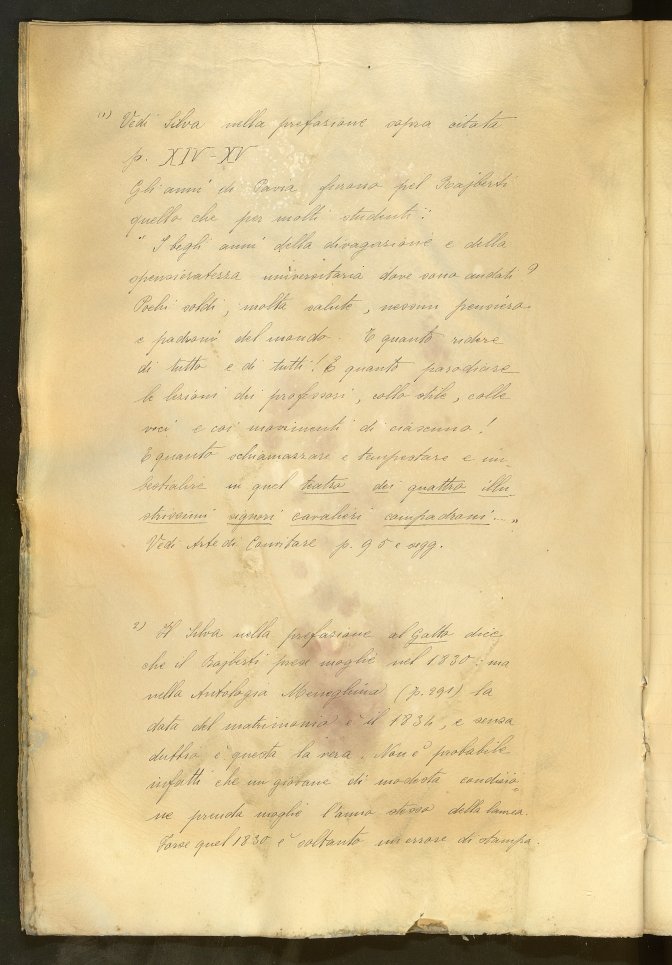 (1) Vedi Silva nella prefazione sopra citata
p. XIV-XV
Gli anni di Pavia furono pel Rajberti
quello che per molti studenti:
"I begli anni della divagazione e della
spensieratezza universitaria dove sono andati?
Pochi soldi, molta salute, nessun pensiero
e padroni del mondo. E quanto ridere
di tutto e di tutti! E quanto parodiare
le lezioni dei professori, collo stile, colle
voci e coi movimenti di ciascuno!
E quanto schiamazzare e tempestare e im-
bestialire in quel teatro dei quattro illu-
strissimi signori cavalieri compadroni..."
Vedi Arte di Convitare p. 95 e segg.
2) Il Silva nella prefazione al Gatto dice
che il Rajberti prese moglie nel 1830: ma
nella Antologia Meneghina (p. 291) la
data del matrimonio è il 1834, e senza
dubbio è questa la vera. Non è probabile
infatti che un giovane di modesta condizio-
ne prenda moglie l'anno stesso della laurea.
Forse quel 1830 è soltanto un errore di stampa.